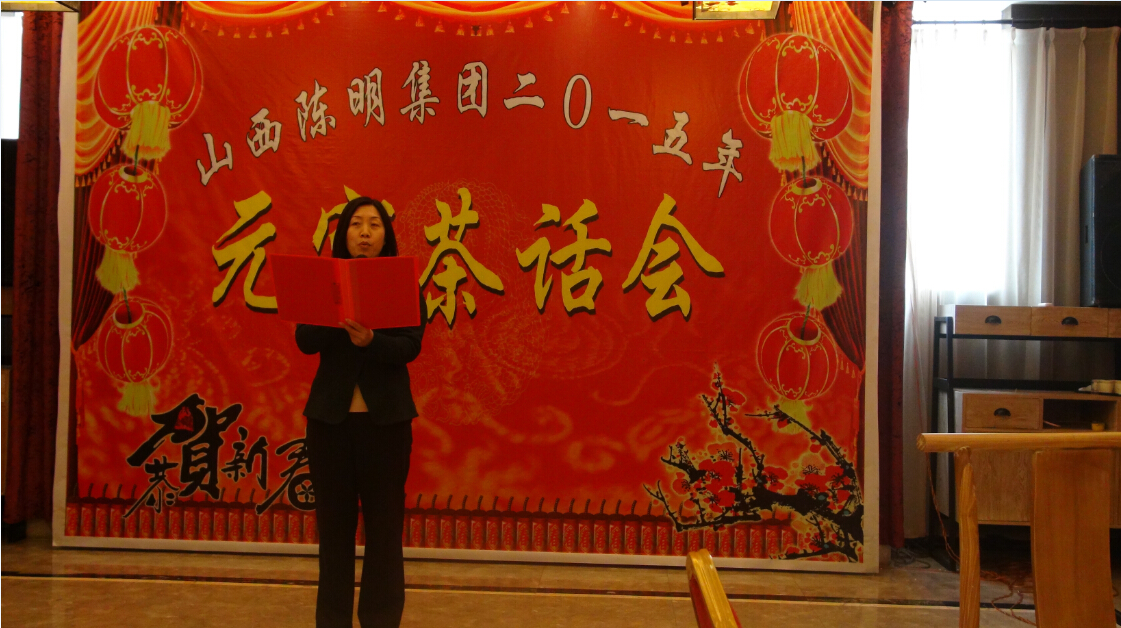 山西陈明集团二0一五年
元宵茶话会
恭賀新春